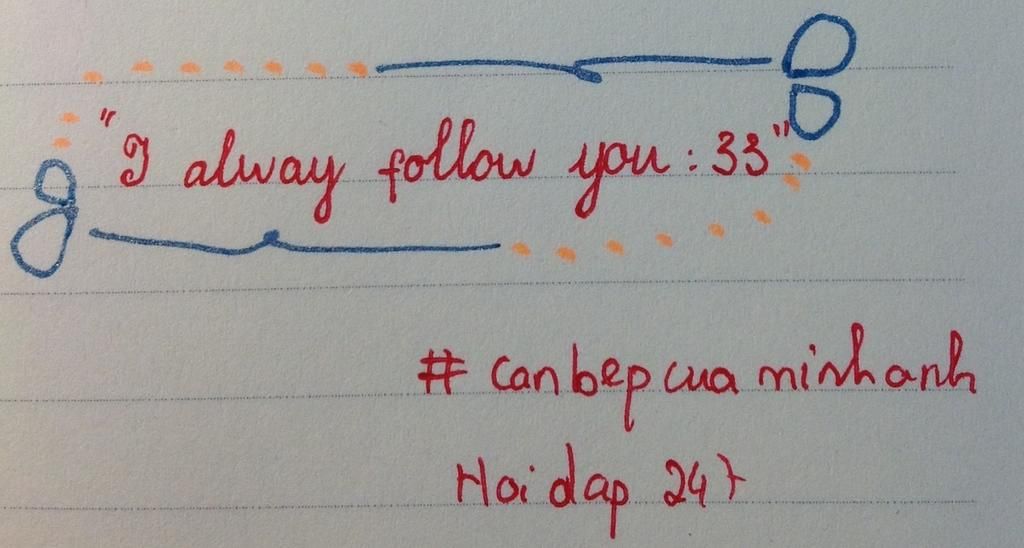 "I alway follow you : 33"
# canbepcuaminhanh
Hoidap 247